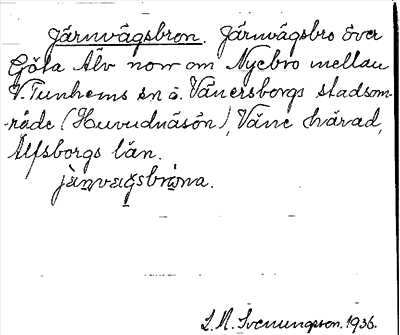 Järnvägsbron. Järnvägsbro över
Göta Älv norr om Nyebro mellan
V. Tunhems sn o. Vänersborgs stadsom-
råde (Huvudnäsön), Väne härad,
Älfsborgs län.
S. M. Svenungsson. 1936.